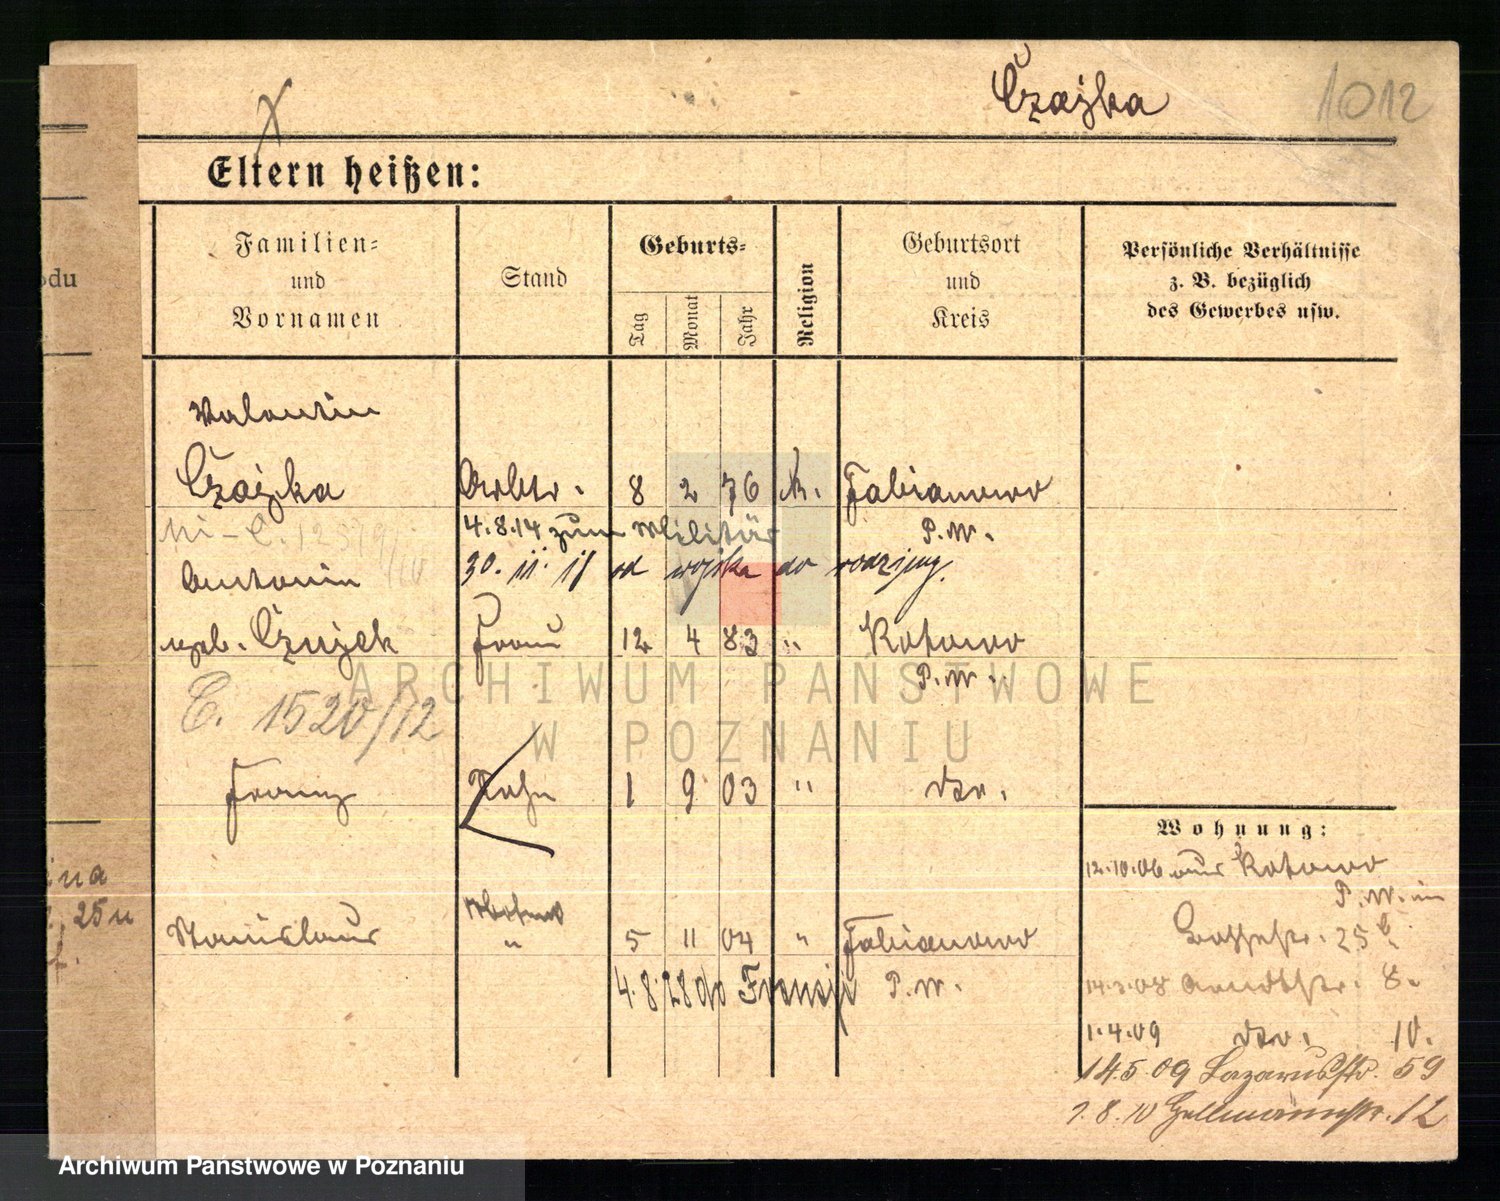 Czajka
1012
X
Eltern heißen:
Familien- und Vornamen
Stand
Geburts-
Tag
Monat
Jahr
Religion
Geburtsort und Kreis
Persönliche Verhältnisse z. B. bezüglich des Gewerbes usw.
odu
Valentin
Czajka Arbtr. 8 2 76 k. Fabianowo
4.8.14 zum Militär P.W.
Antonin 30. 11. 18 od wojska do rodziny.
geb. Czujek Frau 12 4 83 " Kotowo
P.W.
C. 1520/12
Franz Sohn 1 9 03 " dto.
Wohnung:
12.10.06 aus Kotowo
P.W. in
Stanislaus " 5 11 04 " Fabianowo
4.8.28 do Francji P.W.
25 b.
14.3.08 Arndtstr. 8.
1.4.09 dto. 10.
14.5.09 Lazarusstr. 59
1.8.10 12
ina
25 u
ARCHIWUM PAŃSTWOWE
W POZNANIU
Archiwum Państwowe w Poznaniu